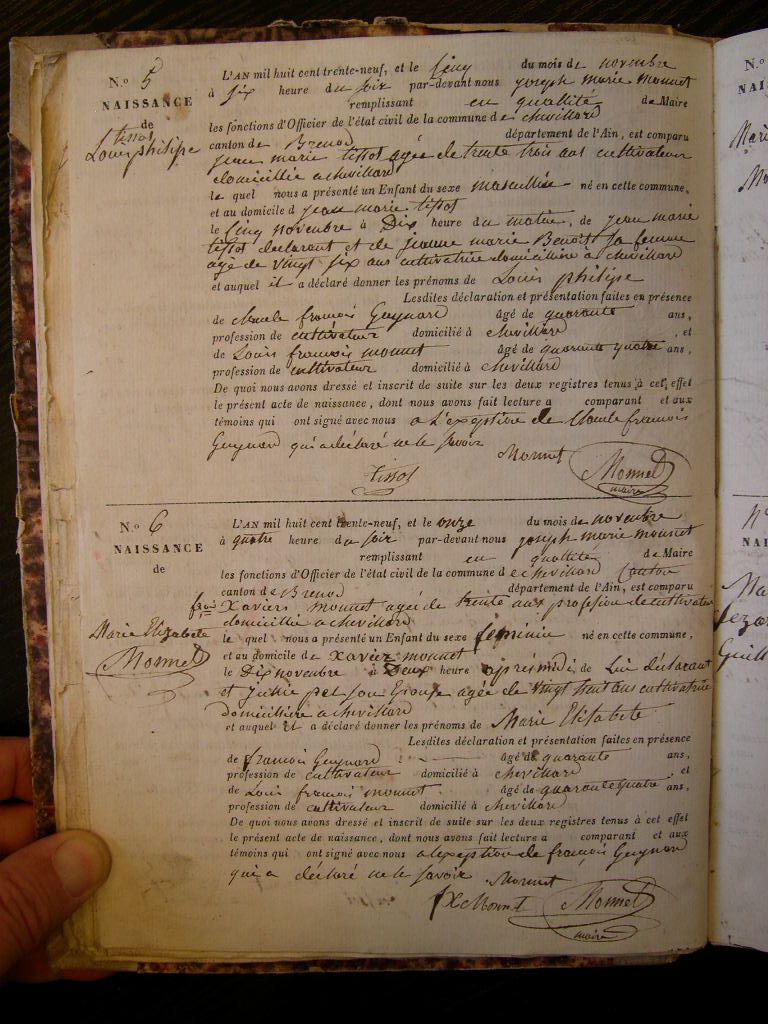 N.o 5
NAISSANCE
de
tissot
Louis philipe
L'AN mil huit cent trente-neuf, et le Cinq du mois de novembre
à Six heure du soir par-devant nous joseph marie monnet
remplissant en quallité de Maire
les fonctions d'Officier de l'état civil de la commune de chevillard
canton de Brenod département de l'Ain, est comparu
jean marie tissot agée de trente trois ans cultivateur
domicillié a chevillard
le quel nous a présenté un Enfant du sexe masculin né en cette commune,
et au domicile d jean marie tissot
le Cinq novembre à Dix heure du matin, de jean marie
tissot declarant et de jeanne marie Benoit sa femme
agé de vingt six ans cultivatrice domicillière a chevillard
et auquel il a déclaré donner les prénoms de Louis philipe
Lesdites déclaration et présentation faites en présence
de Claude francois Guynard âgé de quarante ans,
profession de cultivateur domicilié à chevillard, et
de Louis francois monnet âgé de quarante quatre ans,
profession de cultivateur domicilié à chevillard
De quoi nous avons dressé et inscrit de suite sur les deux registres tenus à cet effet
le présent acte de naissance, dont nous avons fait lecture a comparant et aux
témoins qui ont signé avec nous a l'exeption de Claude francois
Guynard qui a déclaré ne le savoir
Monnet
Tissot
Monnet
maire
N.o 6
NAISSANCE
de
Marie Elizabete
Monnet
L'AN mil huit cent trente-neuf, et le onze du mois de novembre
à quatre heure du soir par-devant nous joseph marie monnet
remplissant en quallité de Maire
les fonctions d'Officier de l'état civil de la commune d e chevillard Canton
canton de Brenod département de l'Ain, est comparu
fcois Xavier monnet agée de trente ans profesion de cultivateur
domicillié a chevillard
le quel nous a présenté un Enfant du sexe féminin né en cette commune,
et au domicile de Xavier monnet
le Dix novembre à Deux heure après midi de Lui déclarant
et julie son Epouse agée de vingt huit ans cultivatrice
domicillière a chevillard
et auquel il a déclaré donner les prénoms de Marie Elisabete
Lesdites déclaration et présentation faites en présence
de francois Guynard âgé de quarante ans,
profession de cultivateur domicilié à chevillard, et
de Louis francois monnet âgé de quarante quatre ans,
profession de cultivateur domicilié à chevillard
De quoi nous avons dressé et inscrit de suite sur les deux registres tenus à cet effet
le présent acte de naissance, dont nous avons fait lecture a comparant et aux
témoins qui ont signé avec nous a lexeption de francois Guynard
qui a déclaré ne le savoir Monnet
fx Monnet
Monnet
maire
N.o
NAI
N.o
NAI